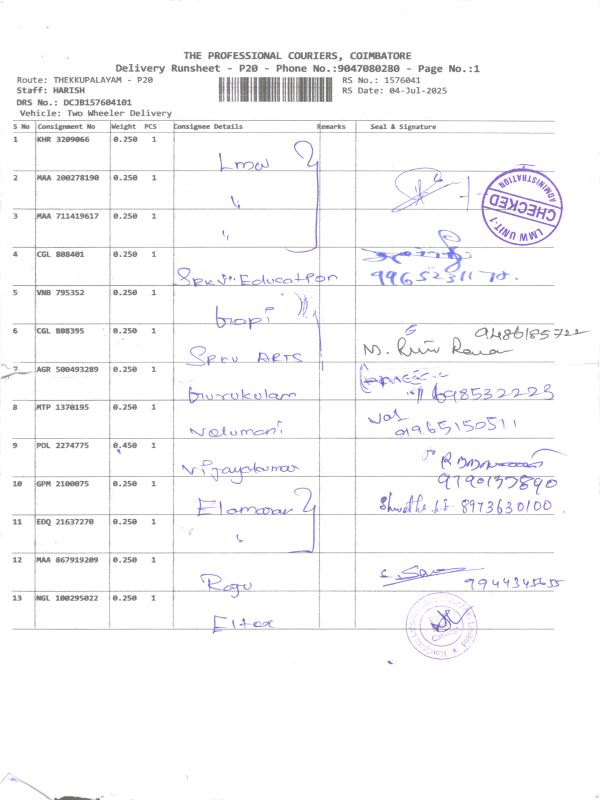 THE PROFESSIONAL COURIERS, COIMBATORE
Delivery Runsheet - P20 - Phone No.:9047080280 - Page No.:1
Route: THEKKUPALAYAM - P20 RS No.: 1576041
Staff: HARISH RS Date: 04-Jul-2025
DRS No.: DCJB157604101
Vehicle: Two Wheeler Delivery
S No Consignment No Weight PCS Consignee Details Remarks Seal & Signature
1 KHR 3209066 0.250 1
Lmw
2 MAA 200278190 0.250 1
"
LMW UNIT-1 CHECKED ADMINISTRATION
3 MAA 711419617 0.250 1
"
4 CGL 808401 0.250 1
Education 9965231178.
5 VNB 795352 0.250 1
Gopi
6 CGL 808395 0.250 1 9486185722
SPKV ARTS M.
7 AGR 500493289 0.250 1
Gurukulam 698532223
8 MTP 1370195 0.250 1
Velumani 9965150511
9 POL 2274775 0.450 1
Vijayakumar
10 GPM 2100075 0.250 1 9790137890
Elamaran 8973630100
11 EDQ 21637270 0.250 1
"
12 MAA 867919209 0.250 1
Ragu 9944345655
13 NGL 100295022 0.250 1
Eltex